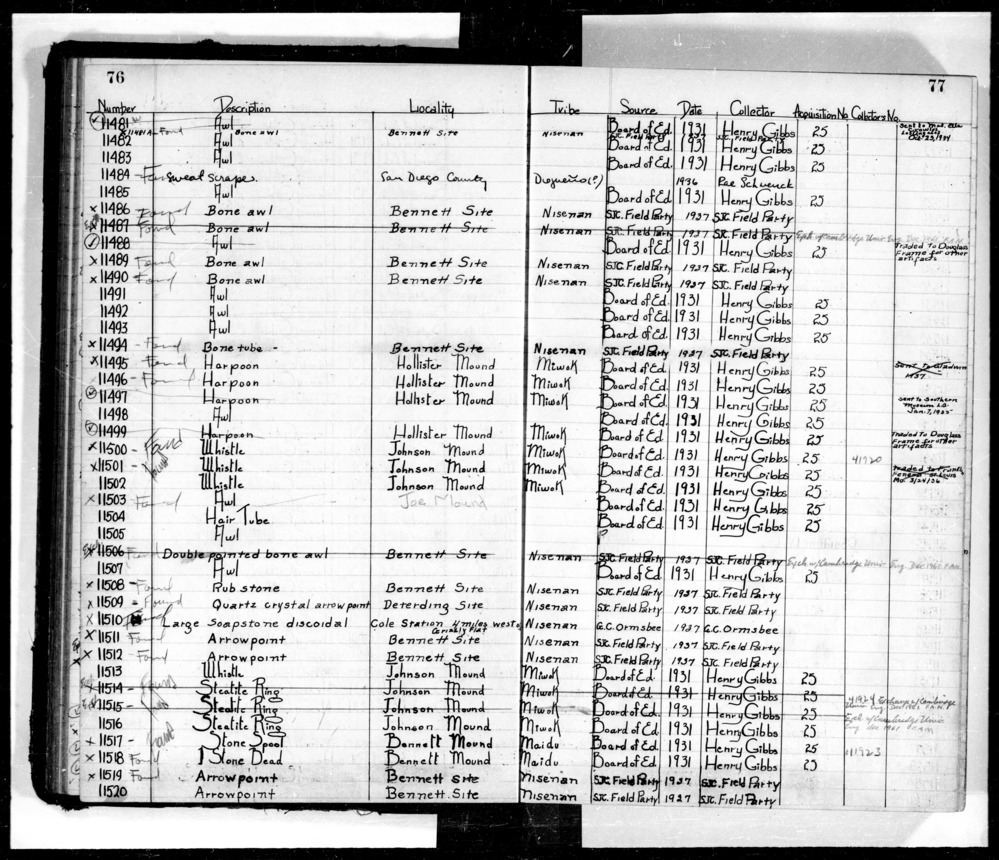 76
77
Number Description Locality Tribe Source Date Collector Acquisition No Collectors No.
11481 Awl Board of Ed. 1931 Henry Gibbs 25
11481A- Found Bone awl Bennett Site Nisenan SJC. Field Party 1937 SJC. Field Party
11482 Awl Board of Ed. 1931 Henry Gibbs 25
11483 Awl Board of Ed. 1931 Henry Gibbs 25
11484 Found Sweat scraper San Diego County 1936 Rae Schwenck
11485 Awl Board of Ed. 1931 Henry Gibbs 25
x 11486 Found Bone awl Bennett Site Nisenan SJC. Field Party 1937 SJC. Field Party
11487 Found Bone awl Bennett Site Nisenan SJC. Field Party 1937 SJC. Field Party
11488 Awl Board of Ed. 1931 Henry Gibbs 25 Traded To Douglass Frame for other artifacts
x 11489 Found Bone awl Bennett Site Nisenan SJC. Field Party 1937 SJC. Field Party
x 11490 Found Bone awl Bennett Site Nisenan SJC. Field Party 1937 SJC. Field Party
11491 Awl Board of Ed. 1931 Henry Gibbs 25
11492 Awl Board of Ed. 1931 Henry Gibbs 25
11493 Awl Board of Ed. 1931 Henry Gibbs 25
x 11494 - Found Bone tube - Bennett Site Nisenan SJC. Field Party 1937 SJC. Field Party
x 11495 Found Harpoon Hollister Mound Miwok Board of Ed. 1931 Henry Gibbs 25
11496 - Found Harpoon Hollister Mound Miwok Board of Ed. 1931 Henry Gibbs 25
11497 Harpoon Hollister Mound Miwok Board of Ed. 1931 Henry Gibbs 25 sent to Southern Museum L.A.
11498 Awl Board of Ed. 1931 Henry Gibbs 25
11499 Harpoon Hollister Mound Miwok Board of Ed. 1931 Henry Gibbs 25 Traded to Douglass Frame for other artifacts
x 11500 - Found Whistle Johnson Mound Miwok Board of Ed. 1931 Henry Gibbs 25 41920
x 11501 - Found Whistle Johnson Mound Miwok Board of Ed. 1931 Henry Gibbs 25
11502 Whistle Johnson Mound Miwok Board of Ed. 1931 Henry Gibbs 25
x 11503 Found Awl Joe Mound Board of Ed. 1931 Henry Gibbs 25
11504 Hair Tube Board of Ed. 1931 Henry Gibbs 25
11505 Awl Board of Ed. 1931 Henry Gibbs 25
x 11506 Found Double pointed bone awl Bennett Site Nisenan SJC. Field Party 1937 SJC. Field Party
11507 Awl Board of Ed. 1931 Henry Gibbs 25
x 11508 - Found Rub stone Bennett Site Nisenan SJC. Field Party 1937 SJC. Field Party
x 11509 - Found Quartz crystal arrowpoint Deterding Site Nisenan SJC. Field Party 1937 SJC. Field Party
x 11510 Large Soapstone discoidal Cole Station 4 miles west of Nisenan G.C. Ormsbee 1937 G.C. Ormsbee
x 11511 Found Arrowpoint Bennett Site Nisenan SJC. Field Party 1937 SJC. Field Party
x 11512 - Found Arrowpoint Bennett Site Nisenan SJC. Field Party 1937 SJC. Field Party
11513 Whistle Johnson Mound Miwok Board of Ed. 1931 Henry Gibbs 25
11514 - Found Steatite Ring Johnson Mound Miwok Board of Ed. 1931 Henry Gibbs 25
11515 - Steatite Ring Johnson Mound Miwok Board of Ed. 1931 Henry Gibbs 25
11516 Steatite Ring Johnson Mound Miwok Board of Ed. 1931 Henry Gibbs 25
x 11517 - Found Stone Spool Bennett Mound Maidu Board of Ed. 1931 Henry Gibbs 25
x 11518 Found Stone Bead Bennett Mound Maidu Board of Ed. 1931 Henry Gibbs 25
x 11519 Found Arrowpoint Bennett Site Nisenan SJC. Field Party 1937 SJC. Field Party
11520 Arrowpoint Bennett Site Nisenan SJC. Field Party 1937 SJC. Field Party